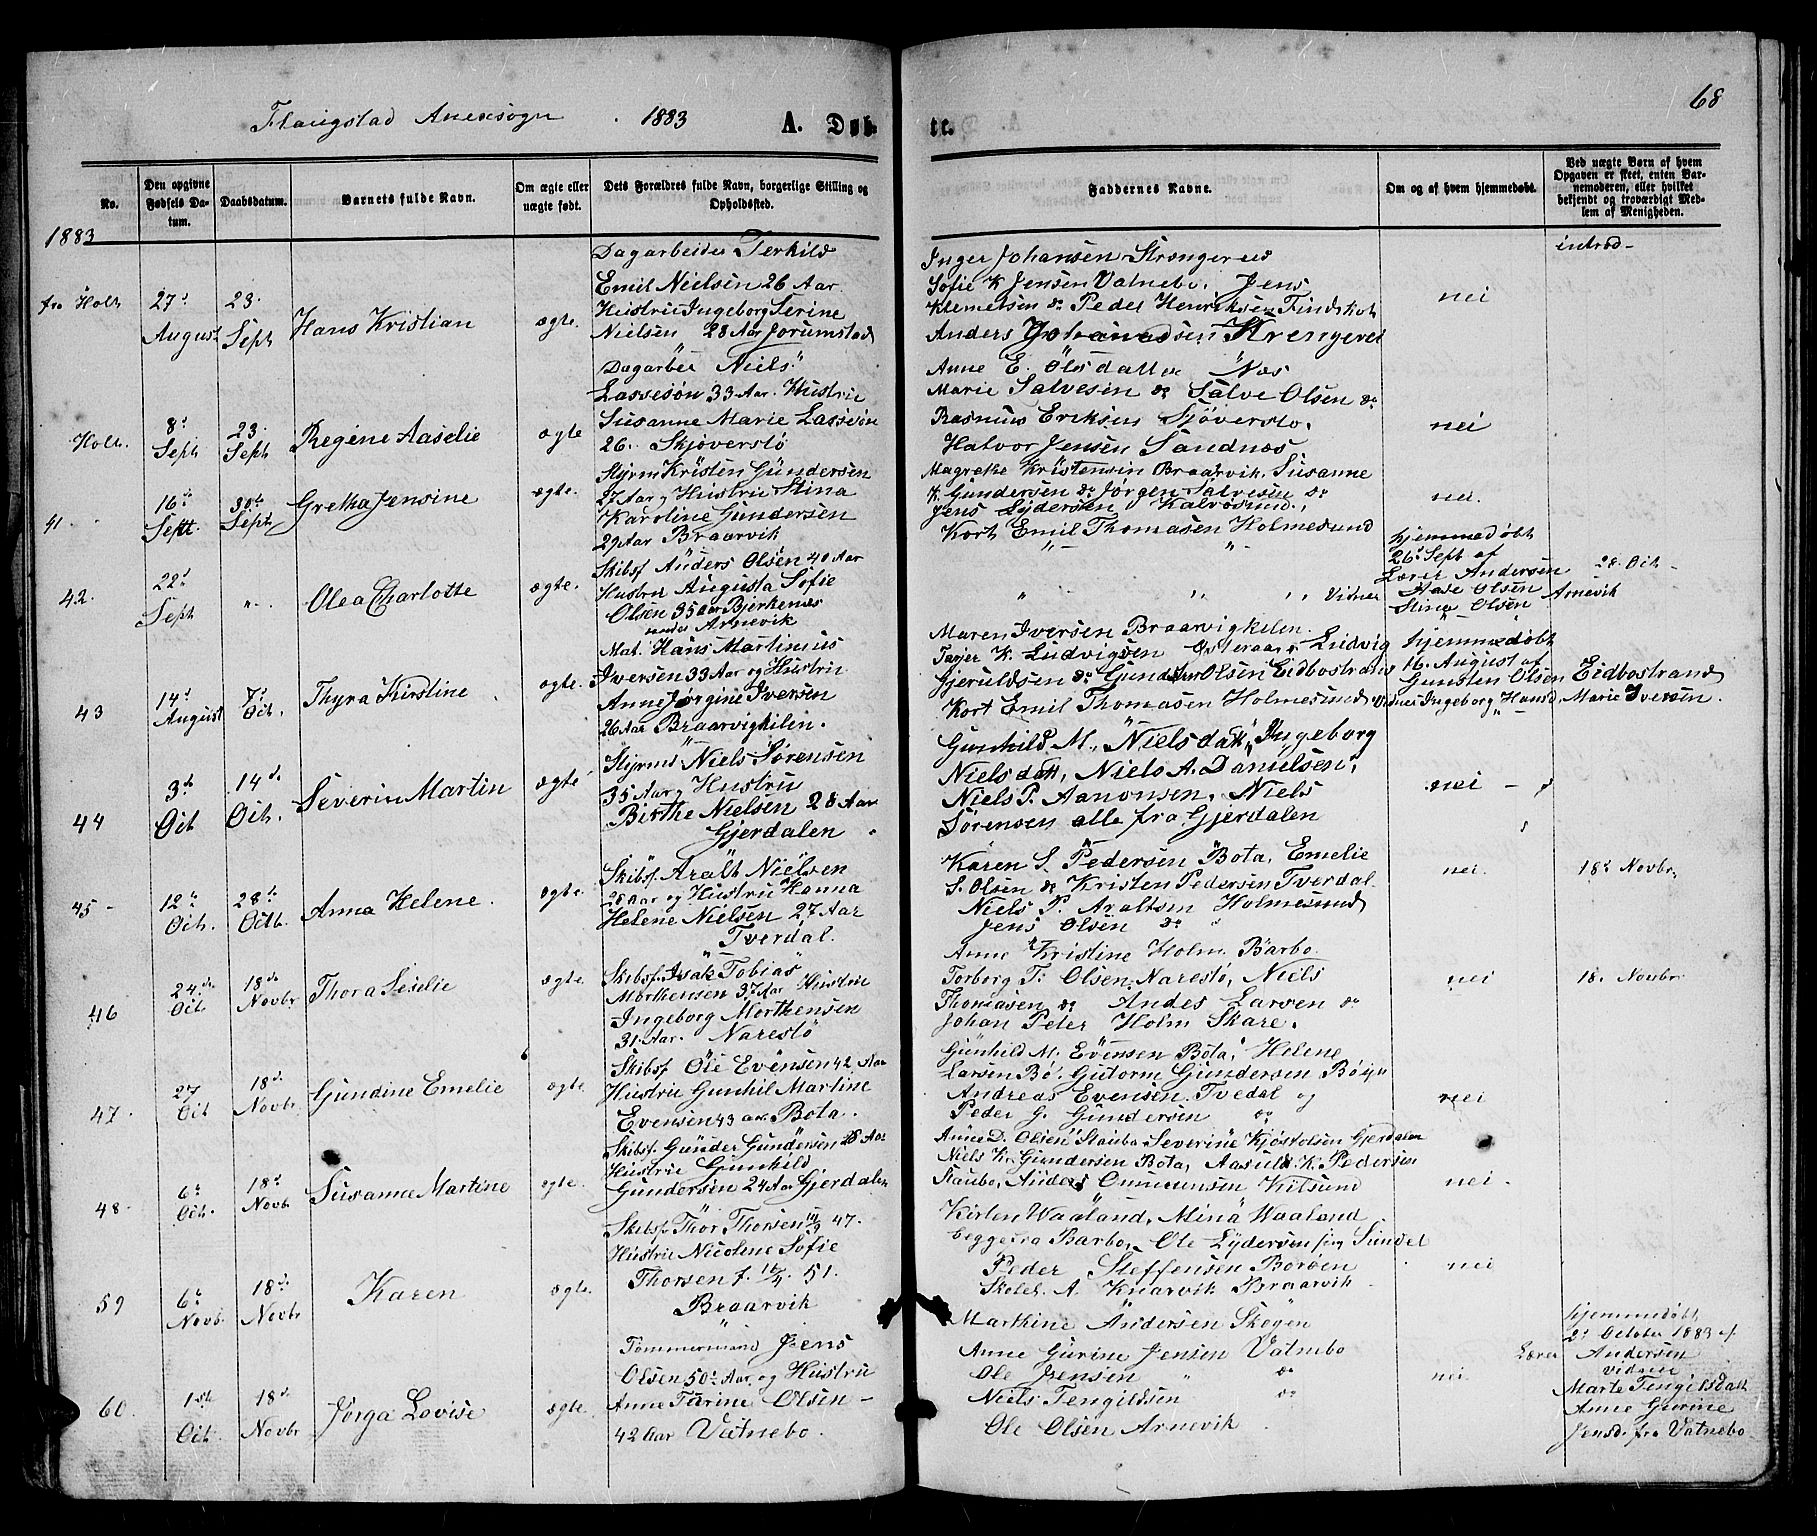 Flangstad Anexsogn 1883 A. Døb-
te. 68
No.
Den opgivne Fødsels Datum.
Daabsdatum.
Barnets fulde Navn.
Om ægte eller uægte født.
Dets Forældres fulde Navn, borgerlige Stilling og Opholdssted.
Faddernes Navne.
Om og af hvem hjemmedøbt.
Ved uægte Børn af hvem Opgaven er skeet, enten Barnemoderen, eller hvilket bekjendt og troværdigt Medlem af Menigheden.
1883
fra Holt
27de August
23. Sept
Hans Kristian
ægte.
Dagarbeider Terkild
Emil Nielsen 26 Aar.
Hustru Ingeborg Serine
Nielsen 28 Aar Jorumstad
Inger Johansen Strengereid
Sofie K Jensen Vatnebo, Jens
Klemetsen do Peder Henriksen
Anders
nei
introd-
Holt
8d Sept
23. Sept
Regine Aaselie
ægte
Dagarbei Niels
Lassesøn 33 Aar. Hustru
Susanne Marie Lassesøn
26. Skjøverstø
Anne E. Olsdatter Næs
Marie Salvesen do Salve Olsen do
Rasmus Eriksen
Halvor Jensen Sandnæs
nei
41
16de Sept.
30te Sept
Gretha Jensine
ægte.
Styrm Kristen Gundersen
27 Aar og Hustru Stina
Karoline Gundersen
29 Aar Braarvik
Magrethe Kristensen Braarvik, Susanne
K. Gundersen do Jørgen Salvesen do
Jens Lydersen Kalvøsund.
Kort Emil Thomasen Holmesund
nei.
42.
22d Sept
"
Olea Charlotte
ægte.
Skibsf Anders Olsen 40 Aar
Hustru Augusta Sofie
Olsen 35 aar Bjerkenæs
Arnevik
" " " Vidner
hjemmedøbt
26d Sept af
Lærer Andersen
Olsen
Stina Olsen
Arnevik
28. Oct
43
14d August
7d Oct.
Thyra Kirstine
ægte.
Mat. Hans Martinius
Iversen 33 Aar og Hustru
Anne Jørgine Iversen
26 Aar Braarvigkilen.
Maren Iversen Braarvigkilen.
Tarjer K. Ludvigsen Ludvig
Gjeruldsen do Gunder Olsen Eidbostrand
Kort Emil Thomasen Holmesund
hjemmedøbt
16. August af
Gunsten Olsen Eidbostrand
vidner Ingeborg Hansd Marie Iversen.
44
3d Oct
14d. Oct.
Severin Martin
ægte
Styrm Niels Sørensen
35 Aar og Hustru
Birthe Nielsen 28 Aar
Gjerdalen
Gunhild M. Nielsdatt, Ingeborg
Nielsdatt, Niels A. Danielsen,
Niels P. Aanonsen, Niels
Sørensen alle fra Gjerdalen
nei
45
12te Oct.
28de Octb.
Anna Helene.
ægte.
Skibsf. Aralt Nielsen
28 Aar og Hustru Hanna
Helene Nielsen 27 Aar
Tverdal.
Karen S. Pedersen Bota, Emelie
S. Olsen do Kristen Pedersen Tverdal.
Niels P. Araltsen Holmesund
Jens Olsen do
nei.
18d Novbr,
46
24de Oct
18d Novbr
Thora Seselie
ægte.
Skibsf. Isak Tobias
Morthensen 37 Aar Hustru
Ingeborg Morthensen
31. Aar. Narestö
Anne Kristine Holm Barbo
Torborg T. Olsen Narestö, Niels
Thomasen do Andes Larsen do
Johan Peter Holm Skare.
nei
18. Novbr
47.
27 Oct
18d. Novbr
Gundine Emelie
ægte
Skibsf Ole Evensen 42 Aar
Hustru Gunhil Martine
Evensen 43 aar Bota.
Gunhild M. Evensen Bota, Helene
Larsen Bö. Gutorm Gundersen
Andreas Evensen. Tvedal og
Peder G. Gundersen do
nei
48.
6te Oct.
18d Novb
Susanne Martine
ægte.
Skibsf. Gunder Gundersen 28 Aar
Hustru Gunhild
Gundersen 24 Aar Gjerdalen
Anne D. Olsen Staubo. Severine Kjøstolsen Gjerdalen
Niels K. Gundersen Bota, Aasuld K. Pedersen
Staubo, Anders Gunnunsen Kilsund
nei.
59
6te Novb.
18d. Novbr
Karen
ægte.
Skibsf Thor Thorsen 47.
Hustru Nicoline Sofie
Thorsen f. 51.
Braarvik
Kirsten Waaland, Mina Waaland
begge fra Barbo, Ole Lydersen
Peder Steffensen Borøen
A. Knarvik Braarvik
nei
60.
1ste Oct.
18d Novbr
Jørga Lovise
ægte.
Tømmermand Jens
Olsen 50 Aar og Hustru
Anne Tarine Olsen
42 Aar Vatnebo.
Marthine Andersen Skogen
Anne Gurine Jensen Vatnebo
Ole Jensen do
Niels Tengildsen do
Ole Olsen Arnevik
nei.
hjemmedøbt,
2d October 1883 af
Lærer Andersen
vidner
Marte Tengilsdatt
Anne Gurine
Jensd. fra Vatnebo